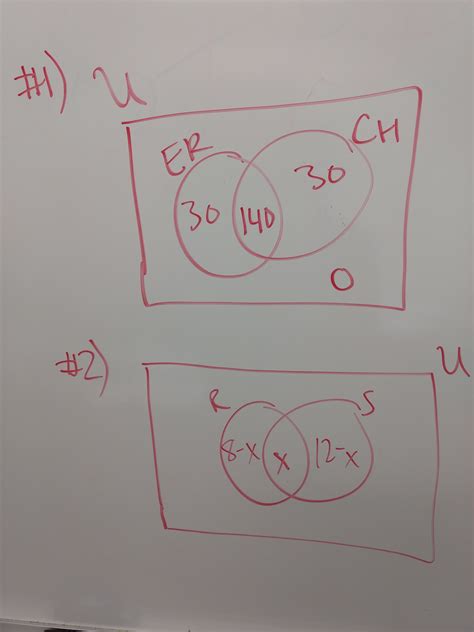 #1) U
ER CH
30 140 30
0
#2) U
R S
8-x x 12-x